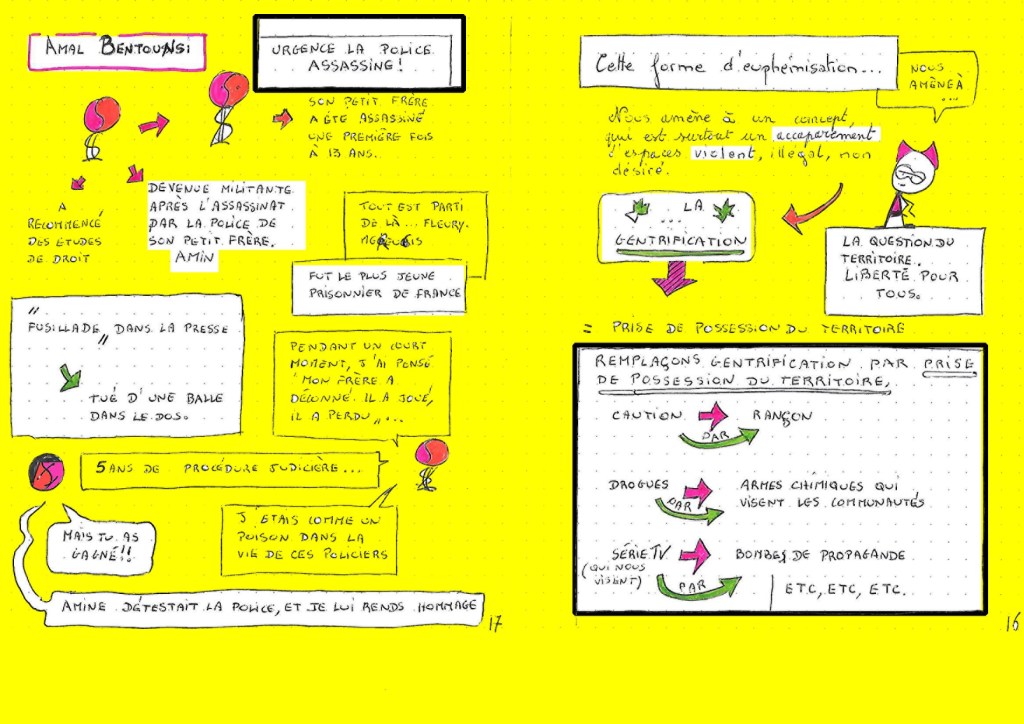 AMAL BENTOUNSI
URGENCE LA POLICE
ASSASSINE!
SON PETIT FRÈRE
A ÉTÉ ASSASSINÉ
UNE PREMIÈRE FOIS
À 13 ANS.
A
RECOMMENCÉ
DES ÉTUDES
DE DROIT
DEVENUE MILITANTE
APRÈS L'ASSASSINAT
PAR LA POLICE DE
SON PETIT FRÈRE.
AMIN
TOUT EST PARTI
DE LÀ... FLEURY-
FUT LE PLUS JEUNE
PRISONNIER DE FRANCE
"
FUSILLADE DANS LA PRESSE
"
TUÉ D'UNE BALLE
DANS LE DOS.
PENDANT UN COURT
MOMENT, J'AI PENSÉ
"MON FRÈRE A
DÉCONNÉ. IL A JOUÉ,
IL A PERDU"...
5 ANS DE PROCÉDURE JUDICIÈRE...
MAIS TU AS
GAGNÉ!!
J'ETAIS COMME UN
POISON DANS LA
VIE DE CES POLICIERS
AMINE DÉTESTAIT LA POLICE, ET JE LUI RENDS HOMMAGE
17
Cette forme d'euphémisation...
NOUS
AMÈNE À
...
Nous amène à un concept,
qui est surtout un accaparement
d'espaces violent, illégal, non
désiré.
... LA ...
GENTRIFICATION
LA QUESTION DU
TERRITOIRE.
LIBERTÉ POUR
TOUS.
= PRISE DE POSSESSION DU TERRITOIRE
REMPLAÇONS GENTRIFICATION PAR PRISE
DE POSSESSION DU TERRITOIRE,
CAUTION RANÇON
PAR
DROGUES ARMES CHIMIQUES QUI
PAR VISENT LES COMMUNAUTÉS
SÉRIE TV BOMBES DE PROPAGANDE
(QUI NOUS
VISENT) PAR
ETC, ETC, ETC.
16